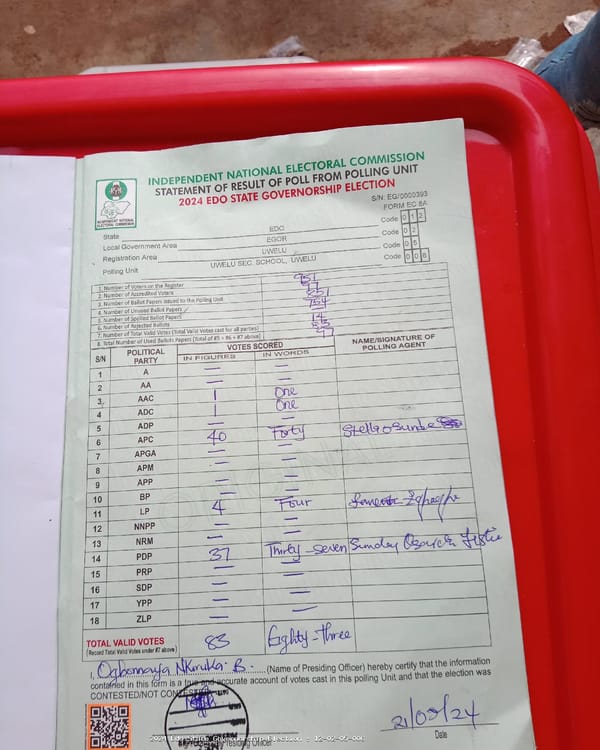 INDEPENDENT NATIONAL ELECTORAL COMMISSION
STATEMENT OF RESULT OF POLL FROM POLLING UNIT
2024 EDO STATE GOVERNORSHIP ELECTION
INDEPENDENT NATIONAL ELECTORAL COMMISSION
S/N: EG/0000393
FORM EC 8A
State EDO Code 0 1 2
Local Government Area EGOR Code 0 2
Registration Area UWELU Code 0 5
Polling Unit UWELU SEC. SCHOOL, UWELU Code 0 0 6
1. Number of Voters on the Register 951
2. Number of Accredited Voters 97
3. Number of Ballot Papers issued to the Polling Unit 851
4. Number of Unused Ballot Papers 754
5. Number of Spoiled Ballot Papers
6. Number of Rejected Ballots 14
7. Number of Total Valid Votes (Total Valid Votes cast for all parties) 83
8. Total Number of Used Ballots Papers (Total of #5 + #6 + #7 above) 97
S/N POLITICAL PARTY VOTES SCORED NAME/SIGNATURE OF POLLING AGENT
IN FIGURES IN WORDS
1 A — —
2 AA — —
3 AAC 1 One
4 ADC 1 One
5 ADP — —
6 APC 40 Forty Stella Osunde
7 APGA — —
8 APM — —
9 APP — —
10 BP — —
11 LP 4 Four
12 NNPP — —
13 NRM — —
14 PDP 37 Thirty-seven Sunday
15 PRP — —
16 SDP — —
17 YPP — —
18 ZLP — —
TOTAL VALID VOTES 83 Eighty-Three
(Record Total Valid Votes under #7 above)
I, Ogbonnaya Nkiruka B. (Name of Presiding Officer) hereby certify that the information
contained in this form is a true and accurate account of votes cast in this polling unit and that the election was
CONTESTED/NOT CONTESTED
21/09/24
Date
Presiding Officer
2024 Edo State Governorship Election - 12-02-05-006